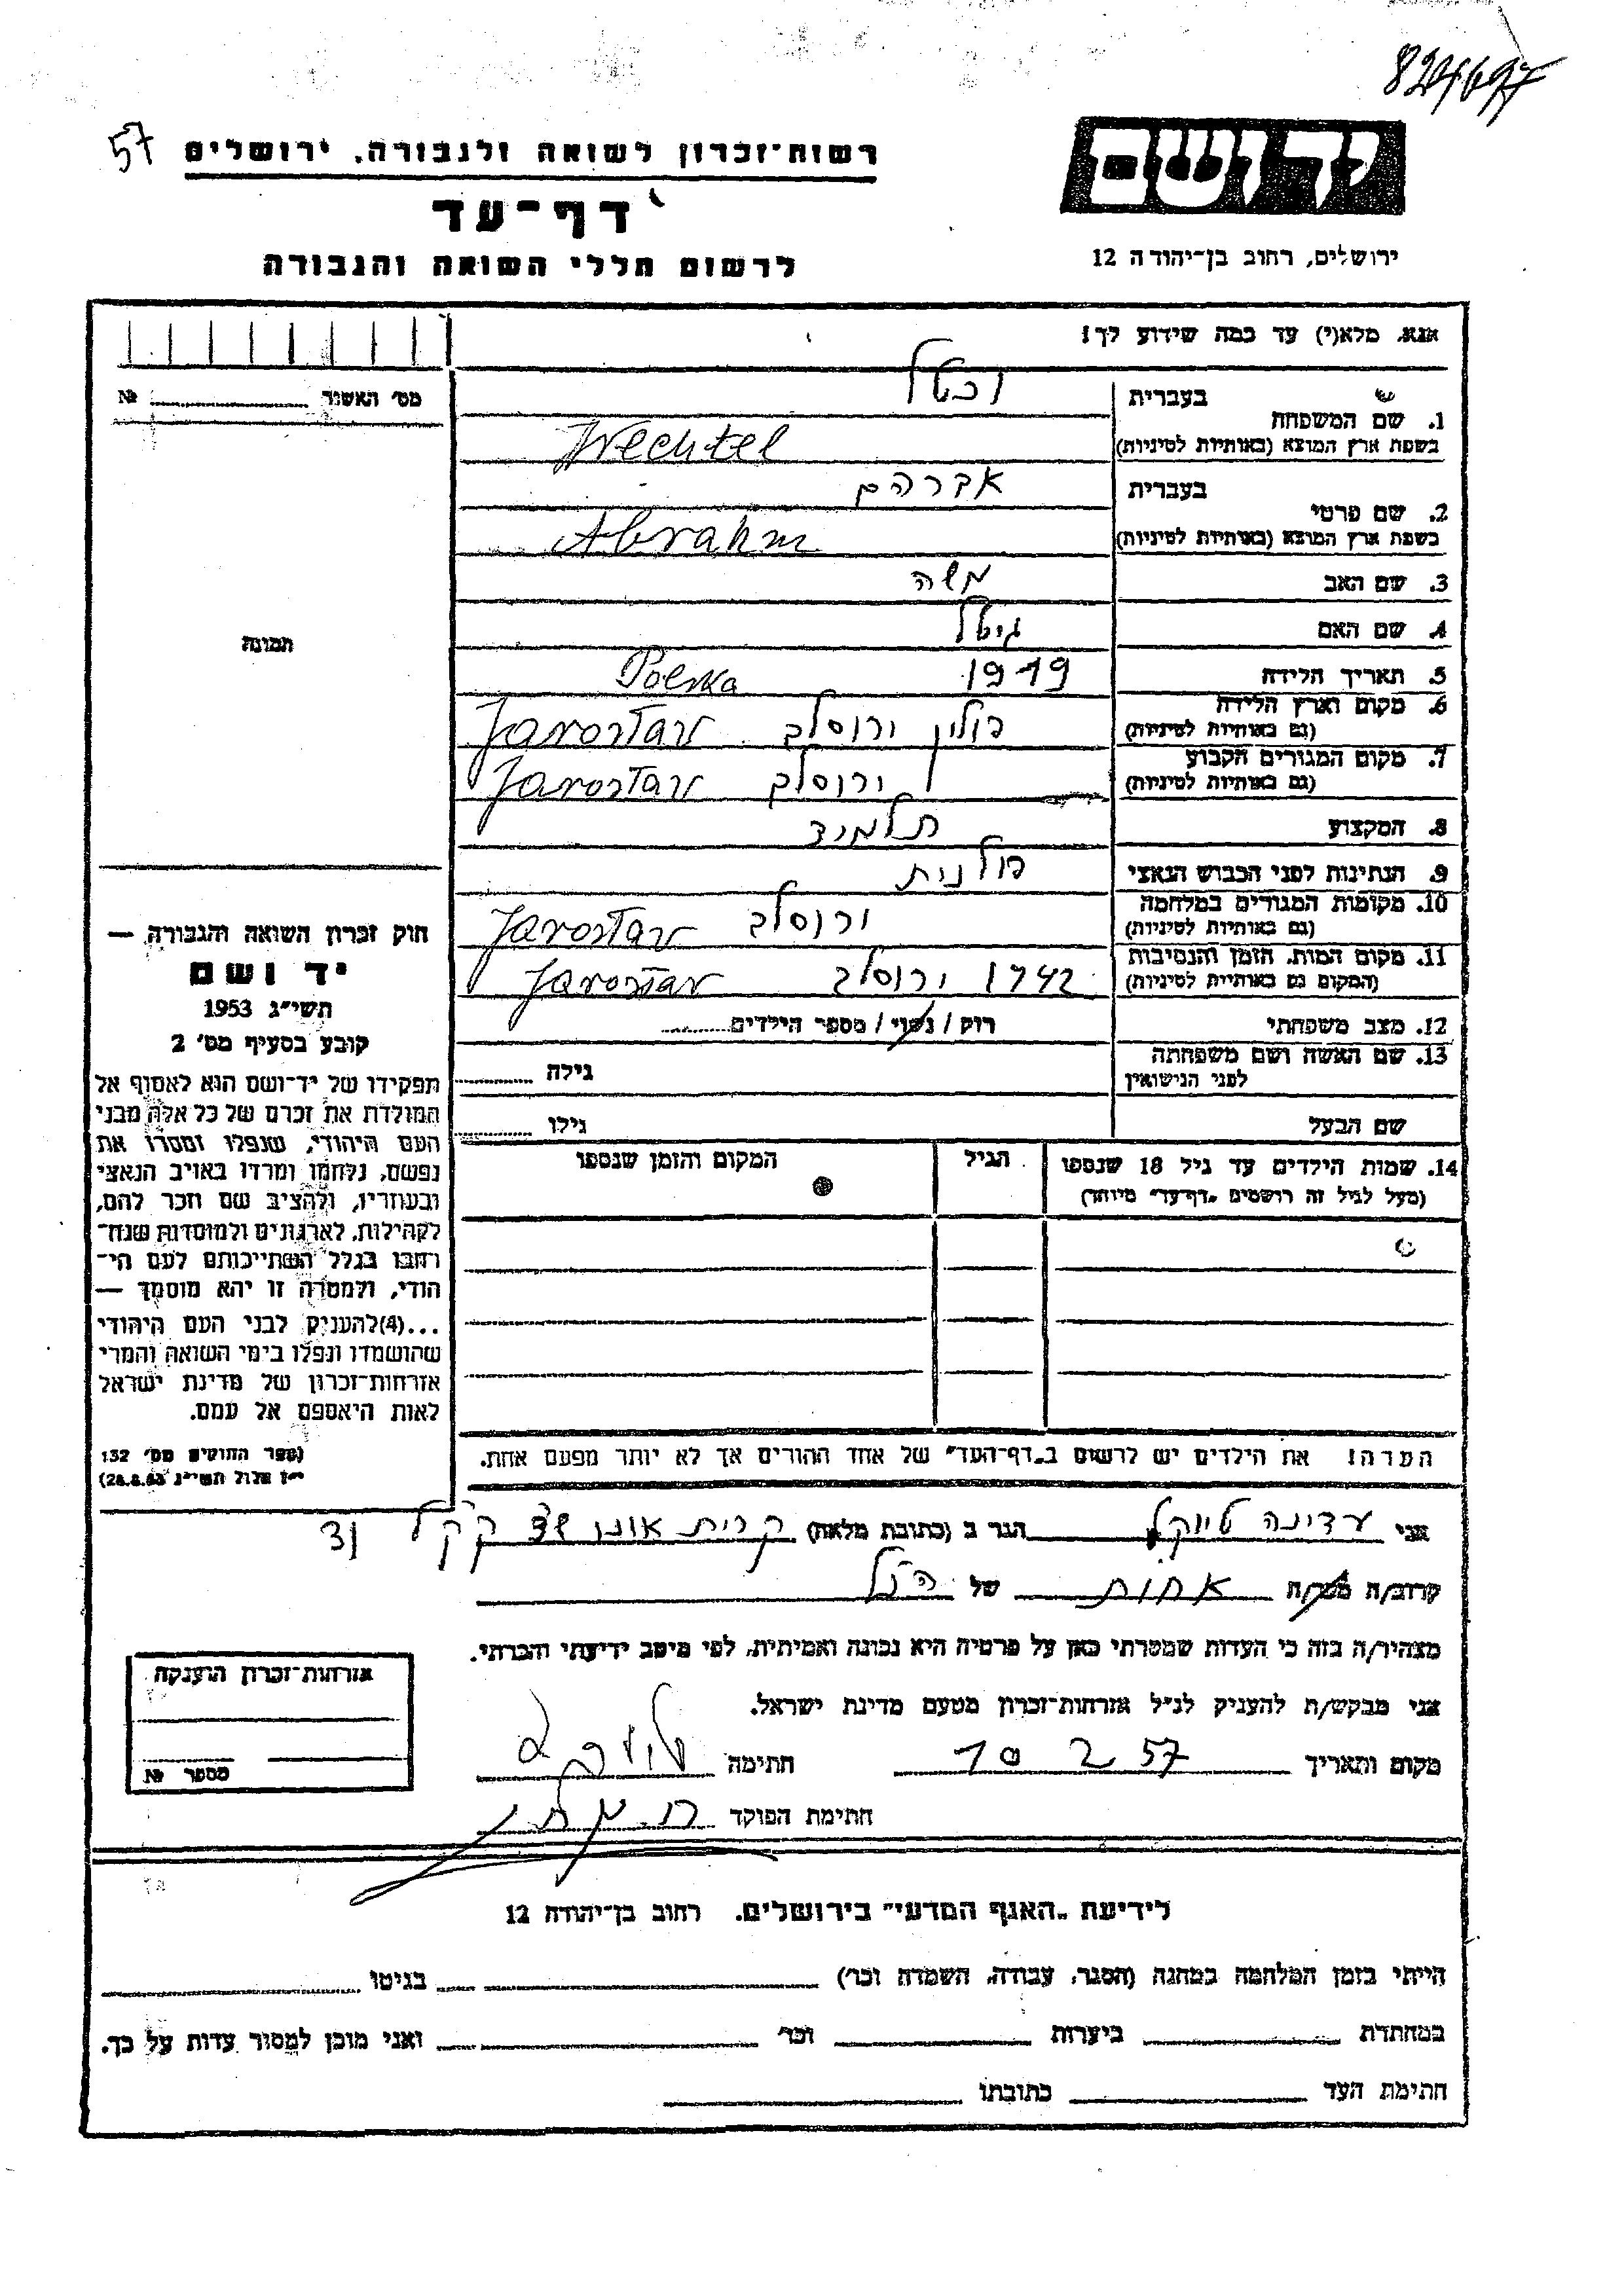 824697
57
רשות־זכרון לשואה ולגבורה, ירושלים
יד ושם
דף־עד
ירושלים, רחוב בן־יהודה 12
לרשום חללי השואה והגבורה
אנא, מלא(י) עד כמה שידוע לך!
מס׳ האשור № 
1. שם המשפחה
בעברית וכטל
בשפת ארץ המוצא (באותיות לטיניות) Wechtel
2. שם פרטי
בעברית אברהם
בשפת ארץ המוצא (באותיות לטיניות) Abrahm
3. שם האב משה
4. שם האם גיטל
5. תאריך הלידה 1919
6. מקום וארץ הלידה (גם באותיות לטיניות) פולין ירוסלב Jarosław Polska
7. מקום המגורים הקבוע (גם באותיות לטיניות) ירוסלב Jarosław
8. המקצוע תלמיד
9. הנתינות לפני הכבוש הנאצי פולנית
10. מקומות המגורים במלחמה (גם באותיות לטיניות) ירוסלב Jarosław
11. מקום המות, הזמן והנסיבות (המקום גם באותיות לטיניות) 1942 ירוסלב Jarosław
12. מצב משפחתי רוק / נשוי / מספר הילדים
13. שם האשה ושם משפחתה לפני הנישואין
גילה
שם הבעל
גילו
14. שמות הילדים עד גיל 18 שנספו
(מעל לגיל זה רושמים „דף־עד” מיוחד)
הגיל
המקום והזמן שנספו
הערה! את הילדים יש לרשום ב„דף־העד” של אחד ההורים אך לא יותר מפעם אחת.
תמונה
חוק זכרון השואה והגבורה —
יד ושם
תשי״ג 1953
קובע בסעיף מס׳ 2
תפקידו של יד־ושם הוא לאסוף אל
המולדת את זכרם של כל אלה מבני
העם היהודי, שנפלו ומסרו את
נפשם, נלחמו ומרדו באויב הנאצי
ובעוזריו, ולהציב שם וזכר להם,
לקהילות, לארגונים ולמוסדות שנח־
רבו בגלל השתייכותם לעם הי־
הודי, ולמטרה זו יהא מוסמך —
...(4)להעניק לבני העם היהודי
שהושמדו ונפלו בימי השואה והמרי
אזרחות־זכרון של מדינת ישראל
לאות היאספם אל עמם.
(ספר החוקים מס׳ 132
י״ז אלול תשי״ג 28.8.53)
אני עדינה הגר ב (כתובת מלאה) קרית אונו
קרוב/ה מכר/ה אחות של הנ״ל
מצהיר/ה בזה כי העדות שמסרתי כאן על פרטיה היא נכונה ואמיתית, לפי מיטב ידיעתי והכרתי.
אני מבקש/ת להעניק לנ״ל אזרחות־זכרון מטעם מדינת ישראל.
מקום ותאריך 10 2 57 חתימה
חתימת הפוקד
אזרחות־זכרון הוענקה
מספר №
לידיעת „האגף המדעי” בירושלים. רחוב בן־יהודה 12
הייתי בזמן המלחמה במחנה (הסגר, עבודה, השמדה וכו׳) בגיטו
במחתרת ביערות וכו׳ ואני מוכן למסור עדות על כך.
חתימת העד כתובתו